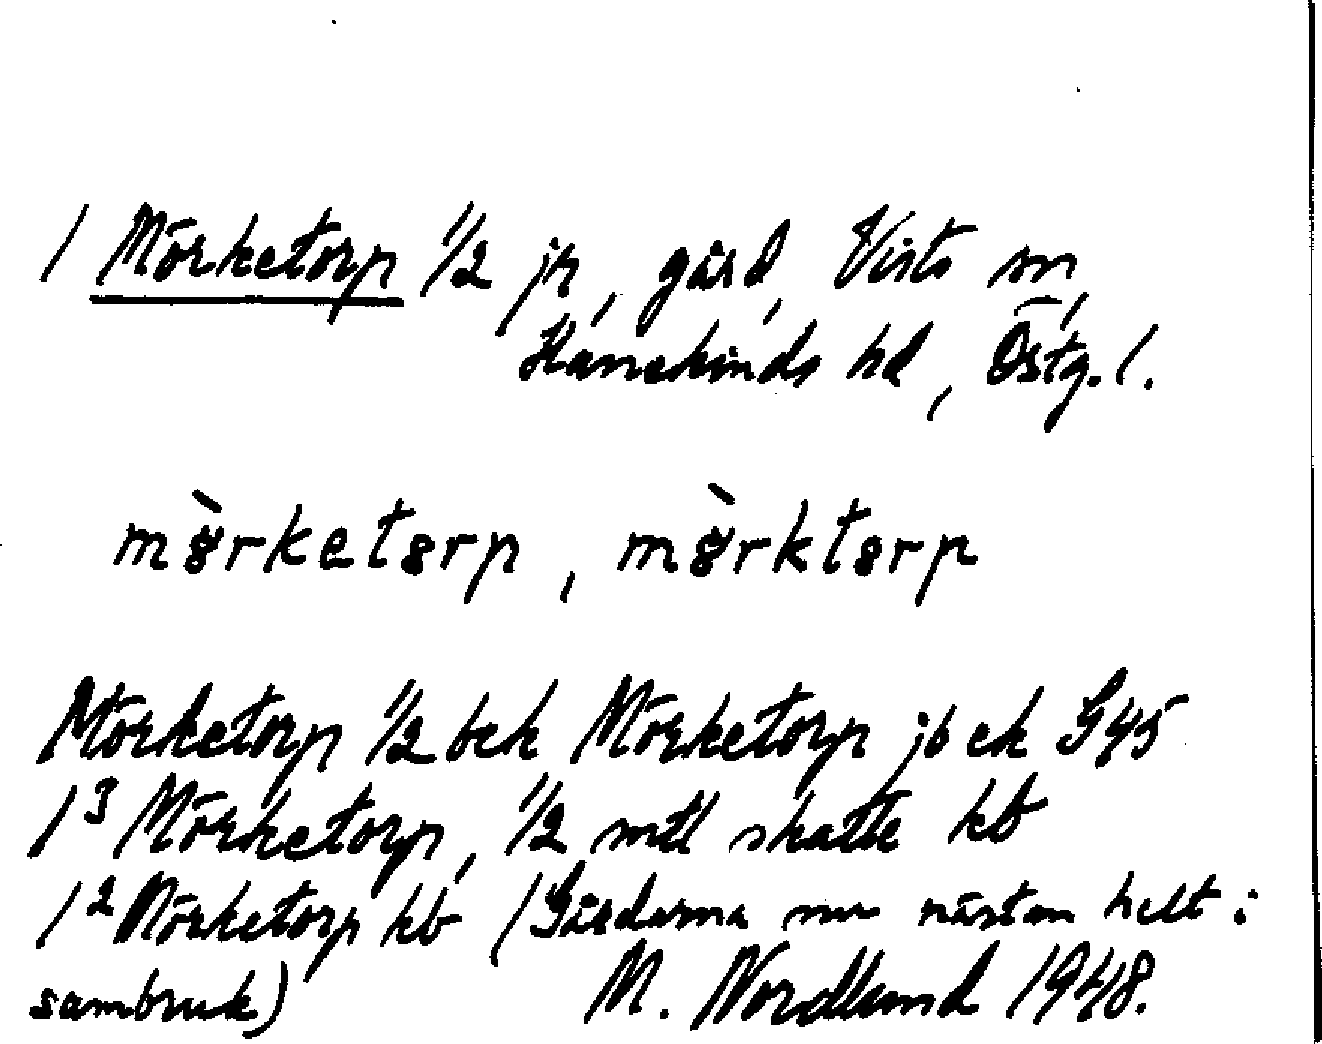 1 Mörketorp 1/2 jr, gård, Vists sn,
Hanekinds hd, Östg. l.
mørketørp, mørktørp
Mörketorp 1/2 bek Mörketorp jb ek G45
1³ Mörketorp, 1/2 mtl skatte kb
1² Mörketorp kb (Gårdarna nu nästan helt i
sambruk) M. Nordlund 1948.